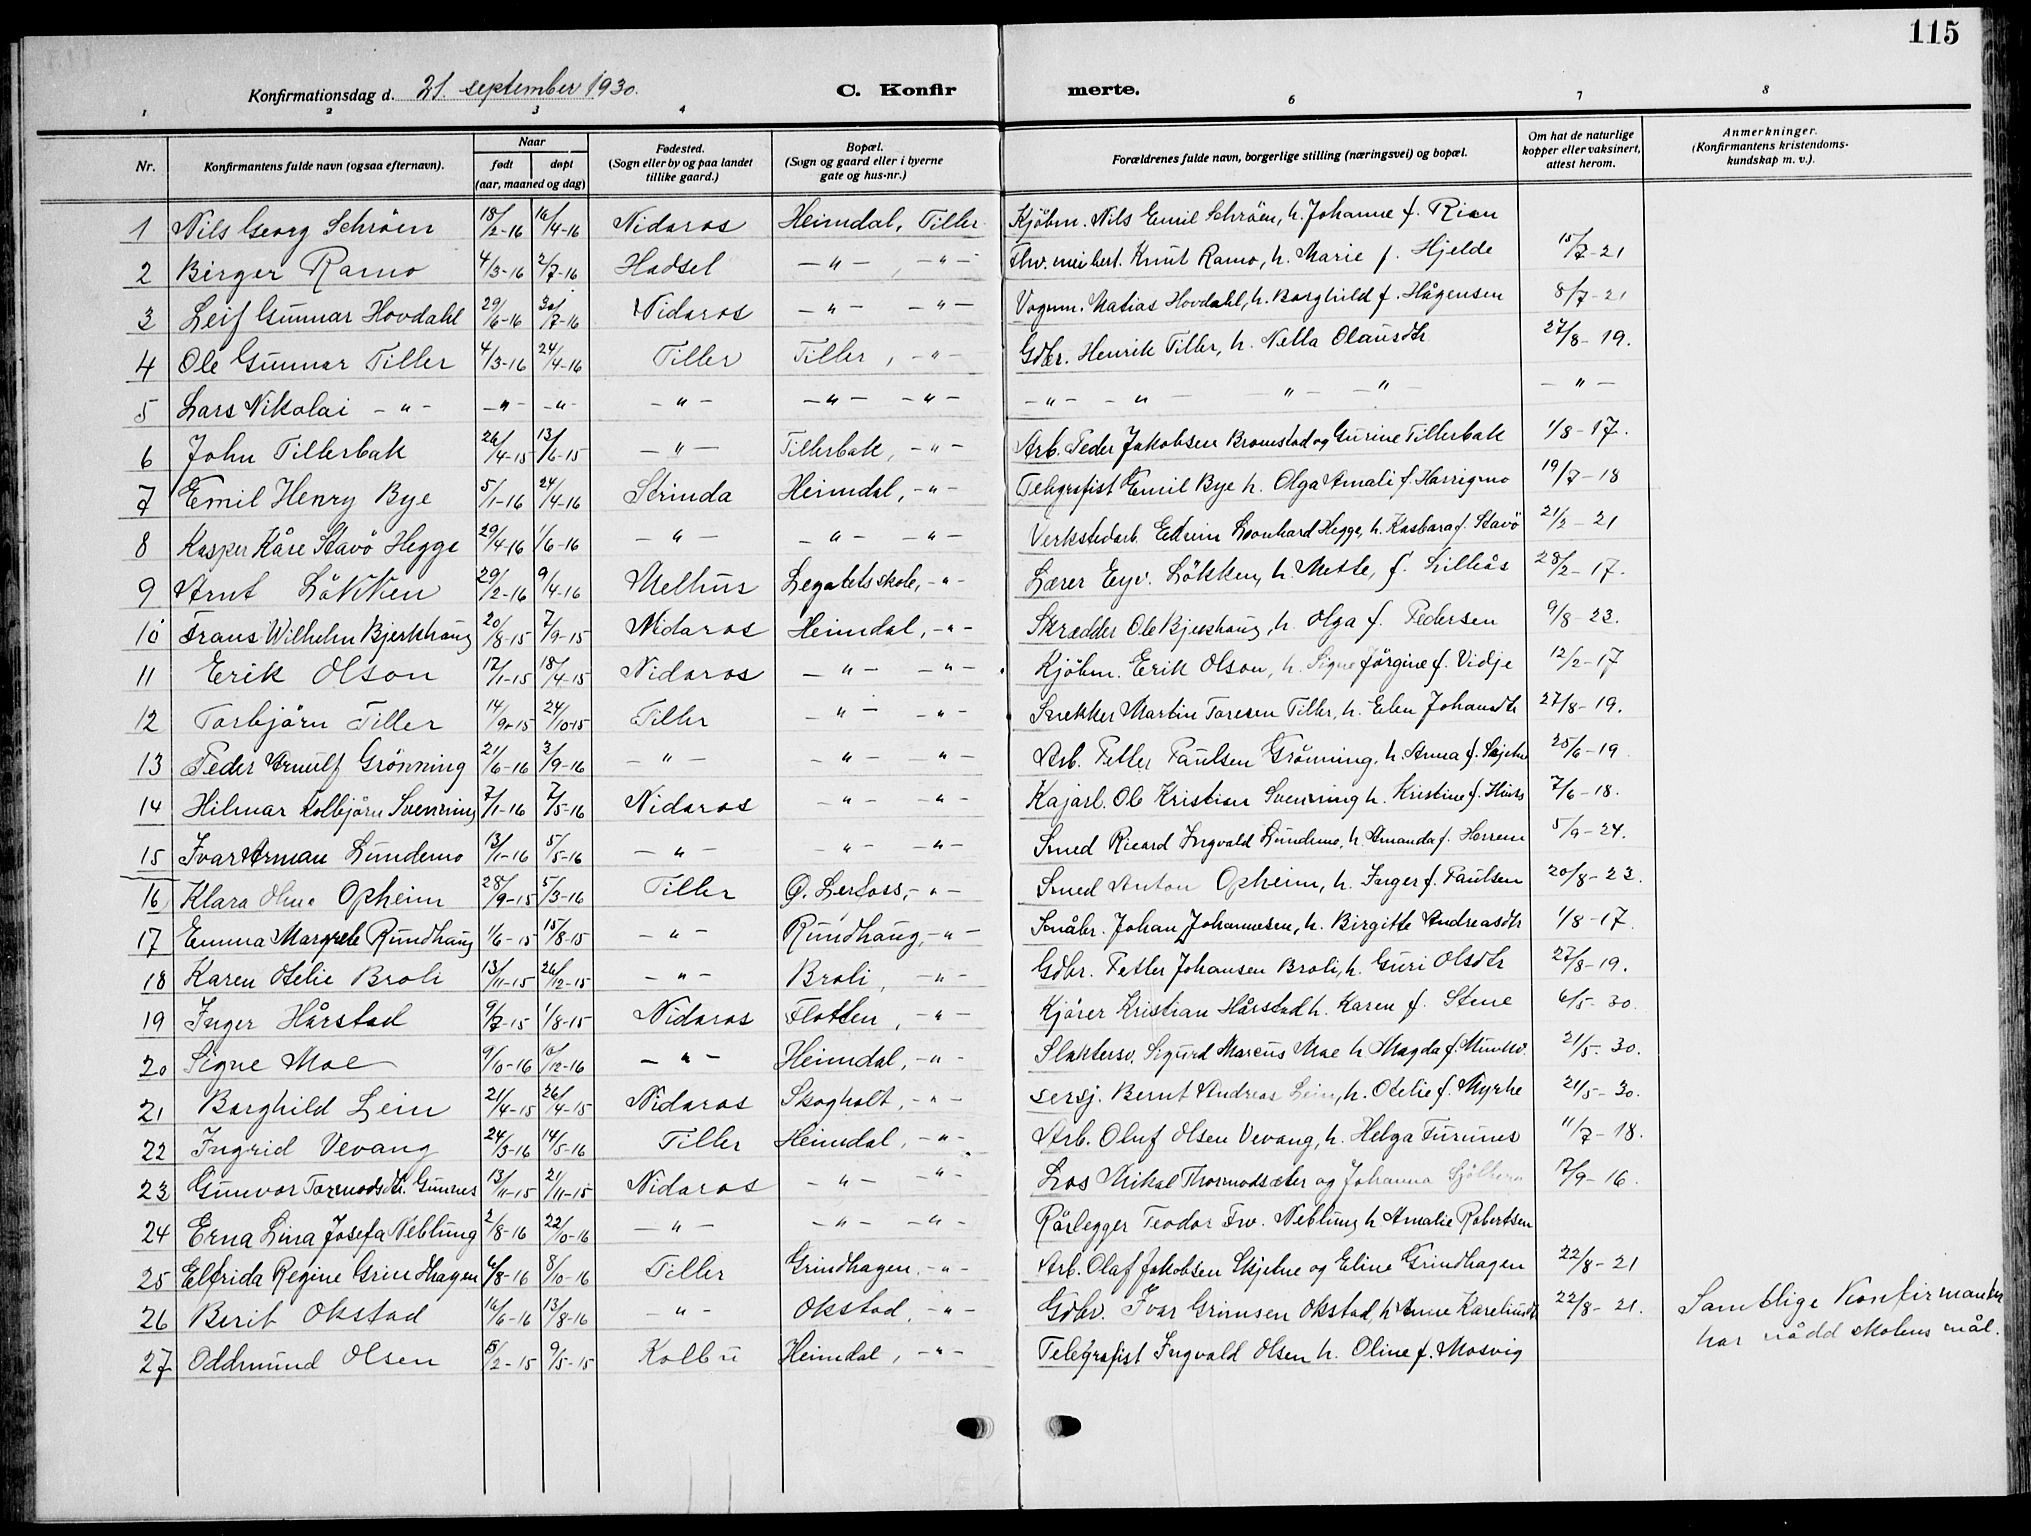 115
Konfirmationsdag d. 21. september 1930. C. Konfir merte.
1 2 3 4 6 7 8
Nr. Konfirmantens fulde navn (ogsaa efternavn). Naar født døpt (aar, maaned og dag) Fødested. (Sogn eller by og paa landet tillike gaard.) Bopæl. (Sogn og gaard eller i byerne gate og hus-nr.) Forældrenes fulde navn, borgerlige stilling (næringsvei) og bopæl. Om hat de naturlige kopper eller vaksinert, attest herom. Anmerkninger. (Konfirmantens kristendoms-kundskap m. v.).
1 Nils Georg Schröen 18/2-16 16/4-16 Nidaros Heimdal, Tiller Kjöbm. Nils Emil Schröen, h. Johanne f. Rian
2 Birger Ramo 4/3-16 2/7-16 Hadsel -"- , -"- Knut Ramo, h. Marie f. Hjelde 15/7-21
3 Leif Gunnar Hovdahl 29/6-16 30/7-16 Nidaros -"- -"- Vognm. Matias Hovdahl, h. Borghild f. Hågensen 8/7-21
4 Ole Gunnar Tiller 4/3-16 24/4-16 Tiller Tiller, -"- Gdbr. Henrik Tiller, h. Nella Olausdtr 27/8-19.
5 Lars Nikolai -"- -"- -"- -"- -"- -"- -"- -"- -"- -"- -"-
6 John Tillerbak 26/4-15 13/6-15 -"- Tillerbak, -"- Arb. Peder Jakobsen Bromstad og Gurine Tillerbak 1/8-17.
7 Emil Henry Bye 5/1-16 24/4-16 Strinda Heimdal, -"- Telegrafist Emil Bye h. Olga Amali f. Harrigmo 19/7-18
8 Kasper Kåre Stavö Hegge 29/4-16 1/6-16 -"- -"- -"- Verkstedarb. Edvin Leonhard Hegge, h. Kasbara f. Stavö 21/2-21
9 Arnt Lökken 29/2-16 9/4-16 Melhus Legatets skole, -"- Lærer Eyv. Lökken, h. Mette, f. Lilleås 28/2-17.
10 Frans Wilhelm Bjerkhaug 20/8-15 7/9-15 Nidaros Heimdal, -"- Skrædder Ole Bjerkhaug, h. Olga f. Pedersen 9/8-23.
11 Erik Olson 17/1-15 18/4-15 Nidaros -"- -"- Kjöbm. Erik Olson, h. Signe Jörgine f. Vidje 12/2-17
12 Torbjörn Tiller 14/9-15 24/10-15 Tiller -"- -"- Snekker Martin Toresen Tiller, h. Elen Johansdtr 27/8-19.
13 Peder Arnulf Grönning 21/6-16 3/9-16 -"- -"- -"- Arb. Petter Paulsen Grönning, h. Anna f. Skjetne 25/6-19.
14 Hilmar Kolbjörn Svenning 7/1-16 7/5-16 Nidaros -"- -"- Ole Kristian Svenning h. Kristine f. 7/6-18.
15 Ivar Arman Lundemo 13/1-16 5/5-16 -"- -"- -"- Smed Ricard Ingvald Lundemo, h. Amanda f. Horrem 5/9-24.
16 Klara Oline Opheim 28/9-15 5/3-16 Tiller Ø. Lerfoss, -"- Smed Anton Opheim, h. Inger f. Paulsen 20/8-23.
17 Emma Margrete Rundhaug 1/6-15 15/8-15 -"- Rundhaug, -"- Småbr. Johan Johannesen, h. Birgitte Andreasdtr 1/8-17.
18 Karen Otelie Broli 13/11-15 26/12-15 -"- Broli, -"- Gdbr. Petter Johansen Broli, h. Guri Olsdtr 27/8-19.
19 Inger Hårstad 9/7-15 1/8-15 Nidaros Flotten, -"- Kjörer Kristian Hårstad h. Karen f. Stene 6/5-30.
20 Signe Moe 9/10-16 10/12-16 -"- Heimdal, -"- Slaktersv. Sigurd Marcus Moe h Magda f. 21/5-30.
21 Borghild Lein 21/4-15 26/4-15 Nidaros Skogholt, -"- sersj. Bernt Andreas Lein, h. Otelie f. Myrhe 21/5-30.
22 Ingrid Vevang 24/3-16 14/5-16 Tiller Heimdal, -"- Arb. Oluf Olsen Vevang, h. Helga Furunes 11/7-18.
23 Gunvor Tormodsdtr. Gunnes 13/11-15 21/11-15 Nidaros -"- -"- Los Mikal Thormodsæter og Johanna 7/9-16.
24 Erna Lina Josefa Neblung 2/8-16 22/10-16 -"- -"- -"- Rörlegger Teodor Fw. Neblung h Amalie Robertsen
25 Elfrida Regine Grindhagen 6/8-16 8/10-16 Tiller Grindhagen, -"- Arb. Olaf Jakobsen Skjetne og Eline Grindhagen 22/8-21
26 Berit Okstad 16/6-16 13/8-16 -"- Okstad, -"- Gdbr. Ivar Grimsen Okstad, h Anne 22/8-21. Samtlige Konfirmanter
har nådd skolens mål.
27 Oddmund Olsen 5/2-15 9/5-15 Kolbu Heimdal, -"- Telegrafist Ingvald Olsen h. Oline f. Mosvig